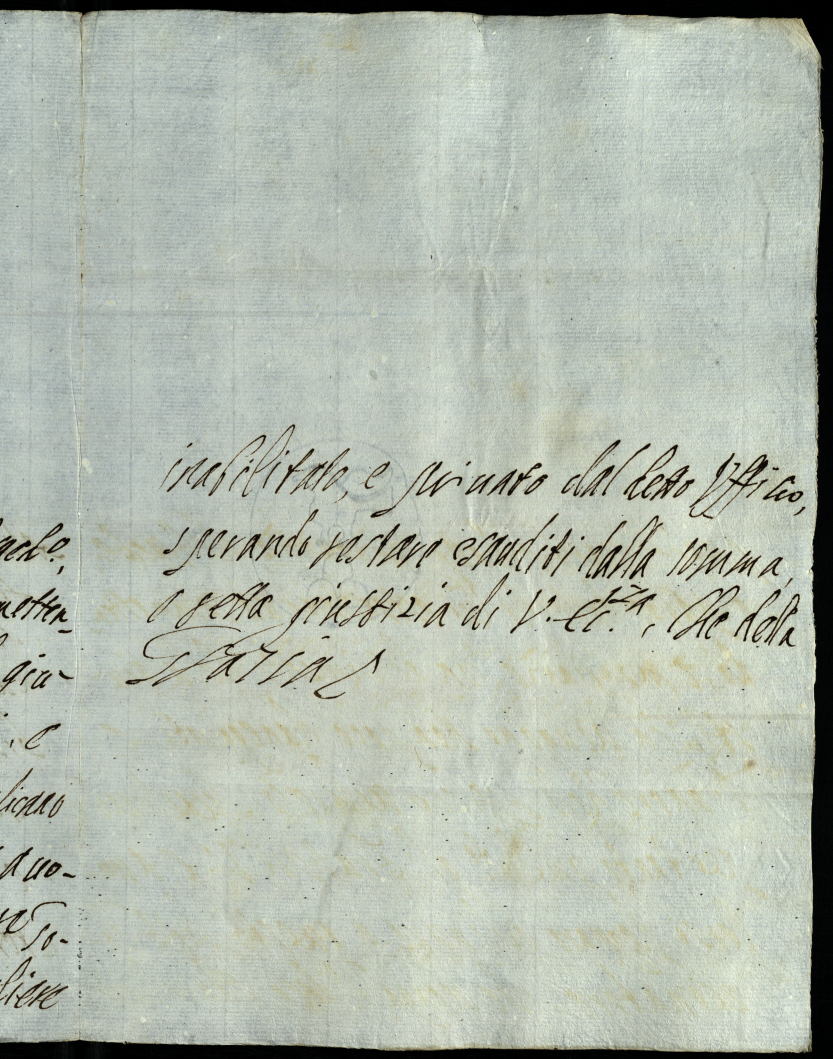 golo,
metten-
giu-
, e
licano
a uo-
so-
liere
inabilitato, e privato dal detto Vfficio,
sperando restare esauditi dalla somma,
e retta giustizia di V. Ecc.za, che della
Grazia